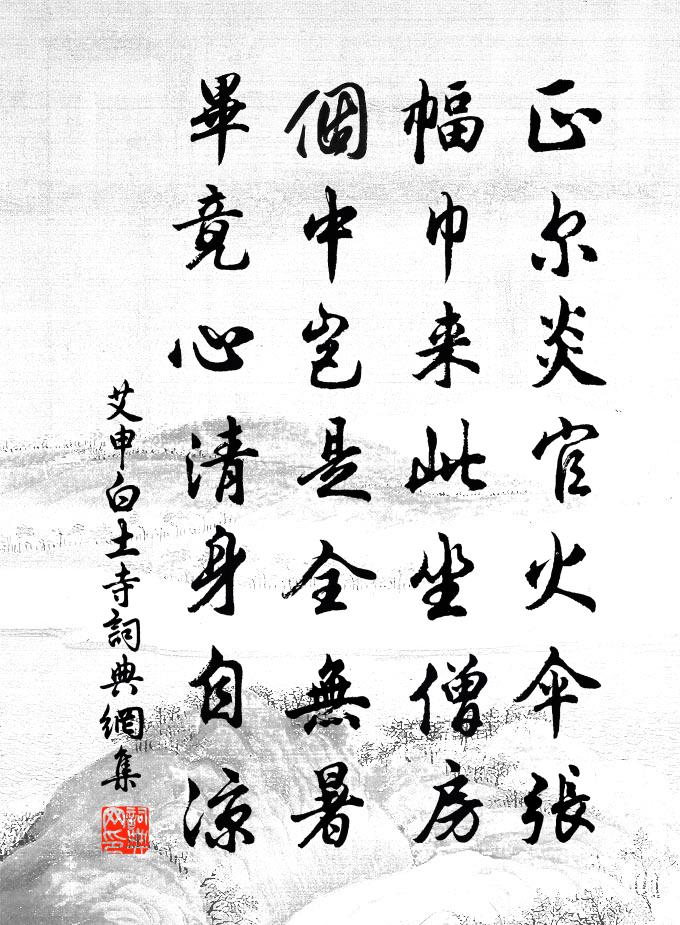 正尔炎官火伞張
幅巾来此坐僧房
個中岂是全無暑
畢竟心清身自凉
艾申白土寺詞典網集
詞典网印